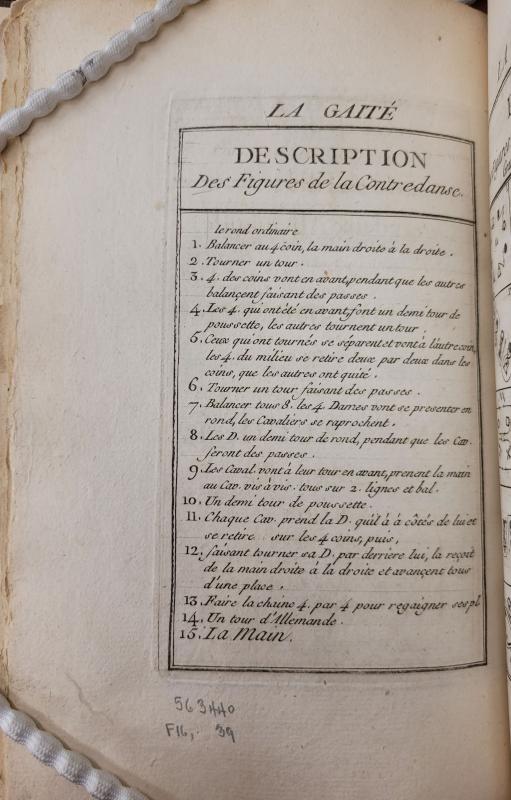 LA GAITÉ
DESCRIPTION
Des Figures de la Contredanse.
le rond ordinaire
1. Balancer au 4 coin, la main droite à la droite.
2. Tourner un tour.
3. 4. des coins vont en avant, pendant que les autres
balançent faisant des passes.
4. Les 4. qui ont été en avant, font un demi tour de
poussette, les autres tournent un tour
5. Ceux qui ont tournés se séparent et vont à l'autre coin,
les 4. du milieu se retire deux par deux dans les
coins, que les autres ont quité.
6. Tourner un tour faisant des passes.
7. Balancer tous 8. les 4 Dames vont se presenter en
rond, les Cavaliers se raprochent.
8. Les D. un demi tour de rond, pendant que les Cav.
feront des passes.
9. Les Caval. vont à leur tour en avant, prenent la main
au Cav. vis à vis. tous sur 2. lignes et bal.
10. Un demi tour de poussette.
11. Chaque Cav. prend la D. qu'il à à côtés de lui et
se retire sur les 4 coins, puis,
12. faisant tourner sa D. par derriere lui, la reçoit
de la main droite à la droite et avançent tous
d'une place.
13. Faire la chaine 4. par 4 pour regaigner ses pl
14. Un tour d'Allemande.
15. La Main.
563440
F16, 39